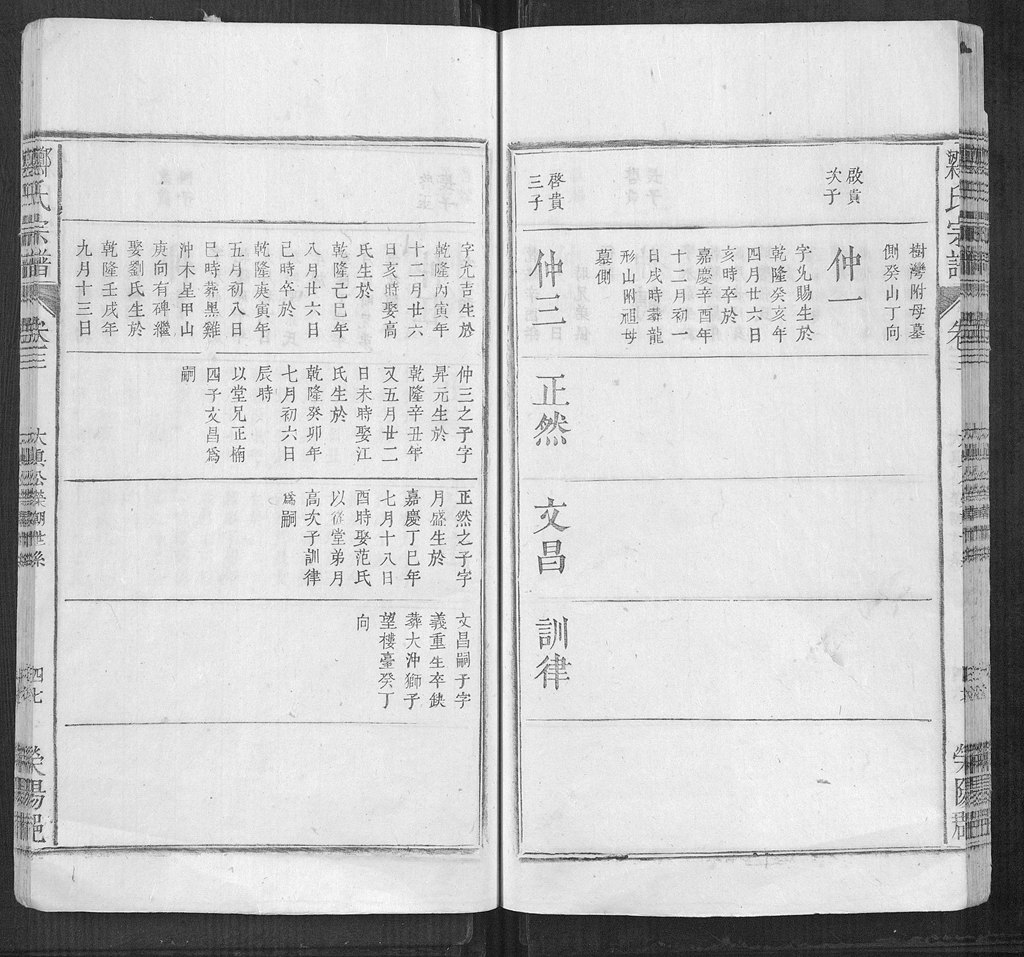 樹灣附母墓
側癸山丁向
啟貴
次子
仲一
字允賜生於
乾隆癸亥年
四月廿六日
亥時卒於
嘉慶辛酉年
十二月初一
日戌時葬龍
形山附祖母
墓側
啓貴
三子
仲三
正然
文昌
訓律
字允吉生於
乾隆丙寅年
十二月廿六
日亥時娶高
氏生於
乾隆己巳年
八月廿六日
巳時卒於
乾隆庚寅年
五月初八日
巳時葬黑雞
沖木星甲山
庚向有碑繼
娶劉氏生於
乾隆壬戌年
九月十三日
仲三之子字
昇元生於
乾隆辛丑年
又五月廿二
日未時娶江
氏生於
乾隆癸卯年
七月初六日
辰時
以堂兄正楠
四子文昌為
嗣
正然之子字
月盛生於
嘉慶丁巳年
七月十八日
酉時娶范氏
以從堂弟月
高次子訓律
為嗣
文昌嗣子字
義重生卒缺
葬大沖獅子
望樓臺癸丁
向
鄭氏宗譜
卷三
四七
滎陽郡